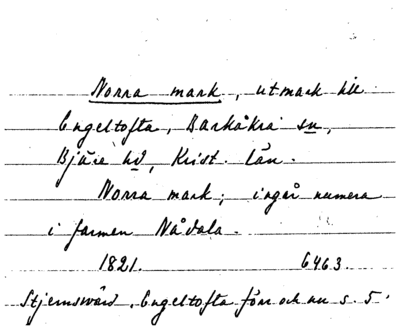 Norra mark, utmark till
Engeltofta, Barkåkra sn,
Bjäre hd, Krist. län.
Norra mark; ingår numera
i farmen Nådala.
1821. 6463.
Stjernswärd. Engeltofta förr och nu s. 5.